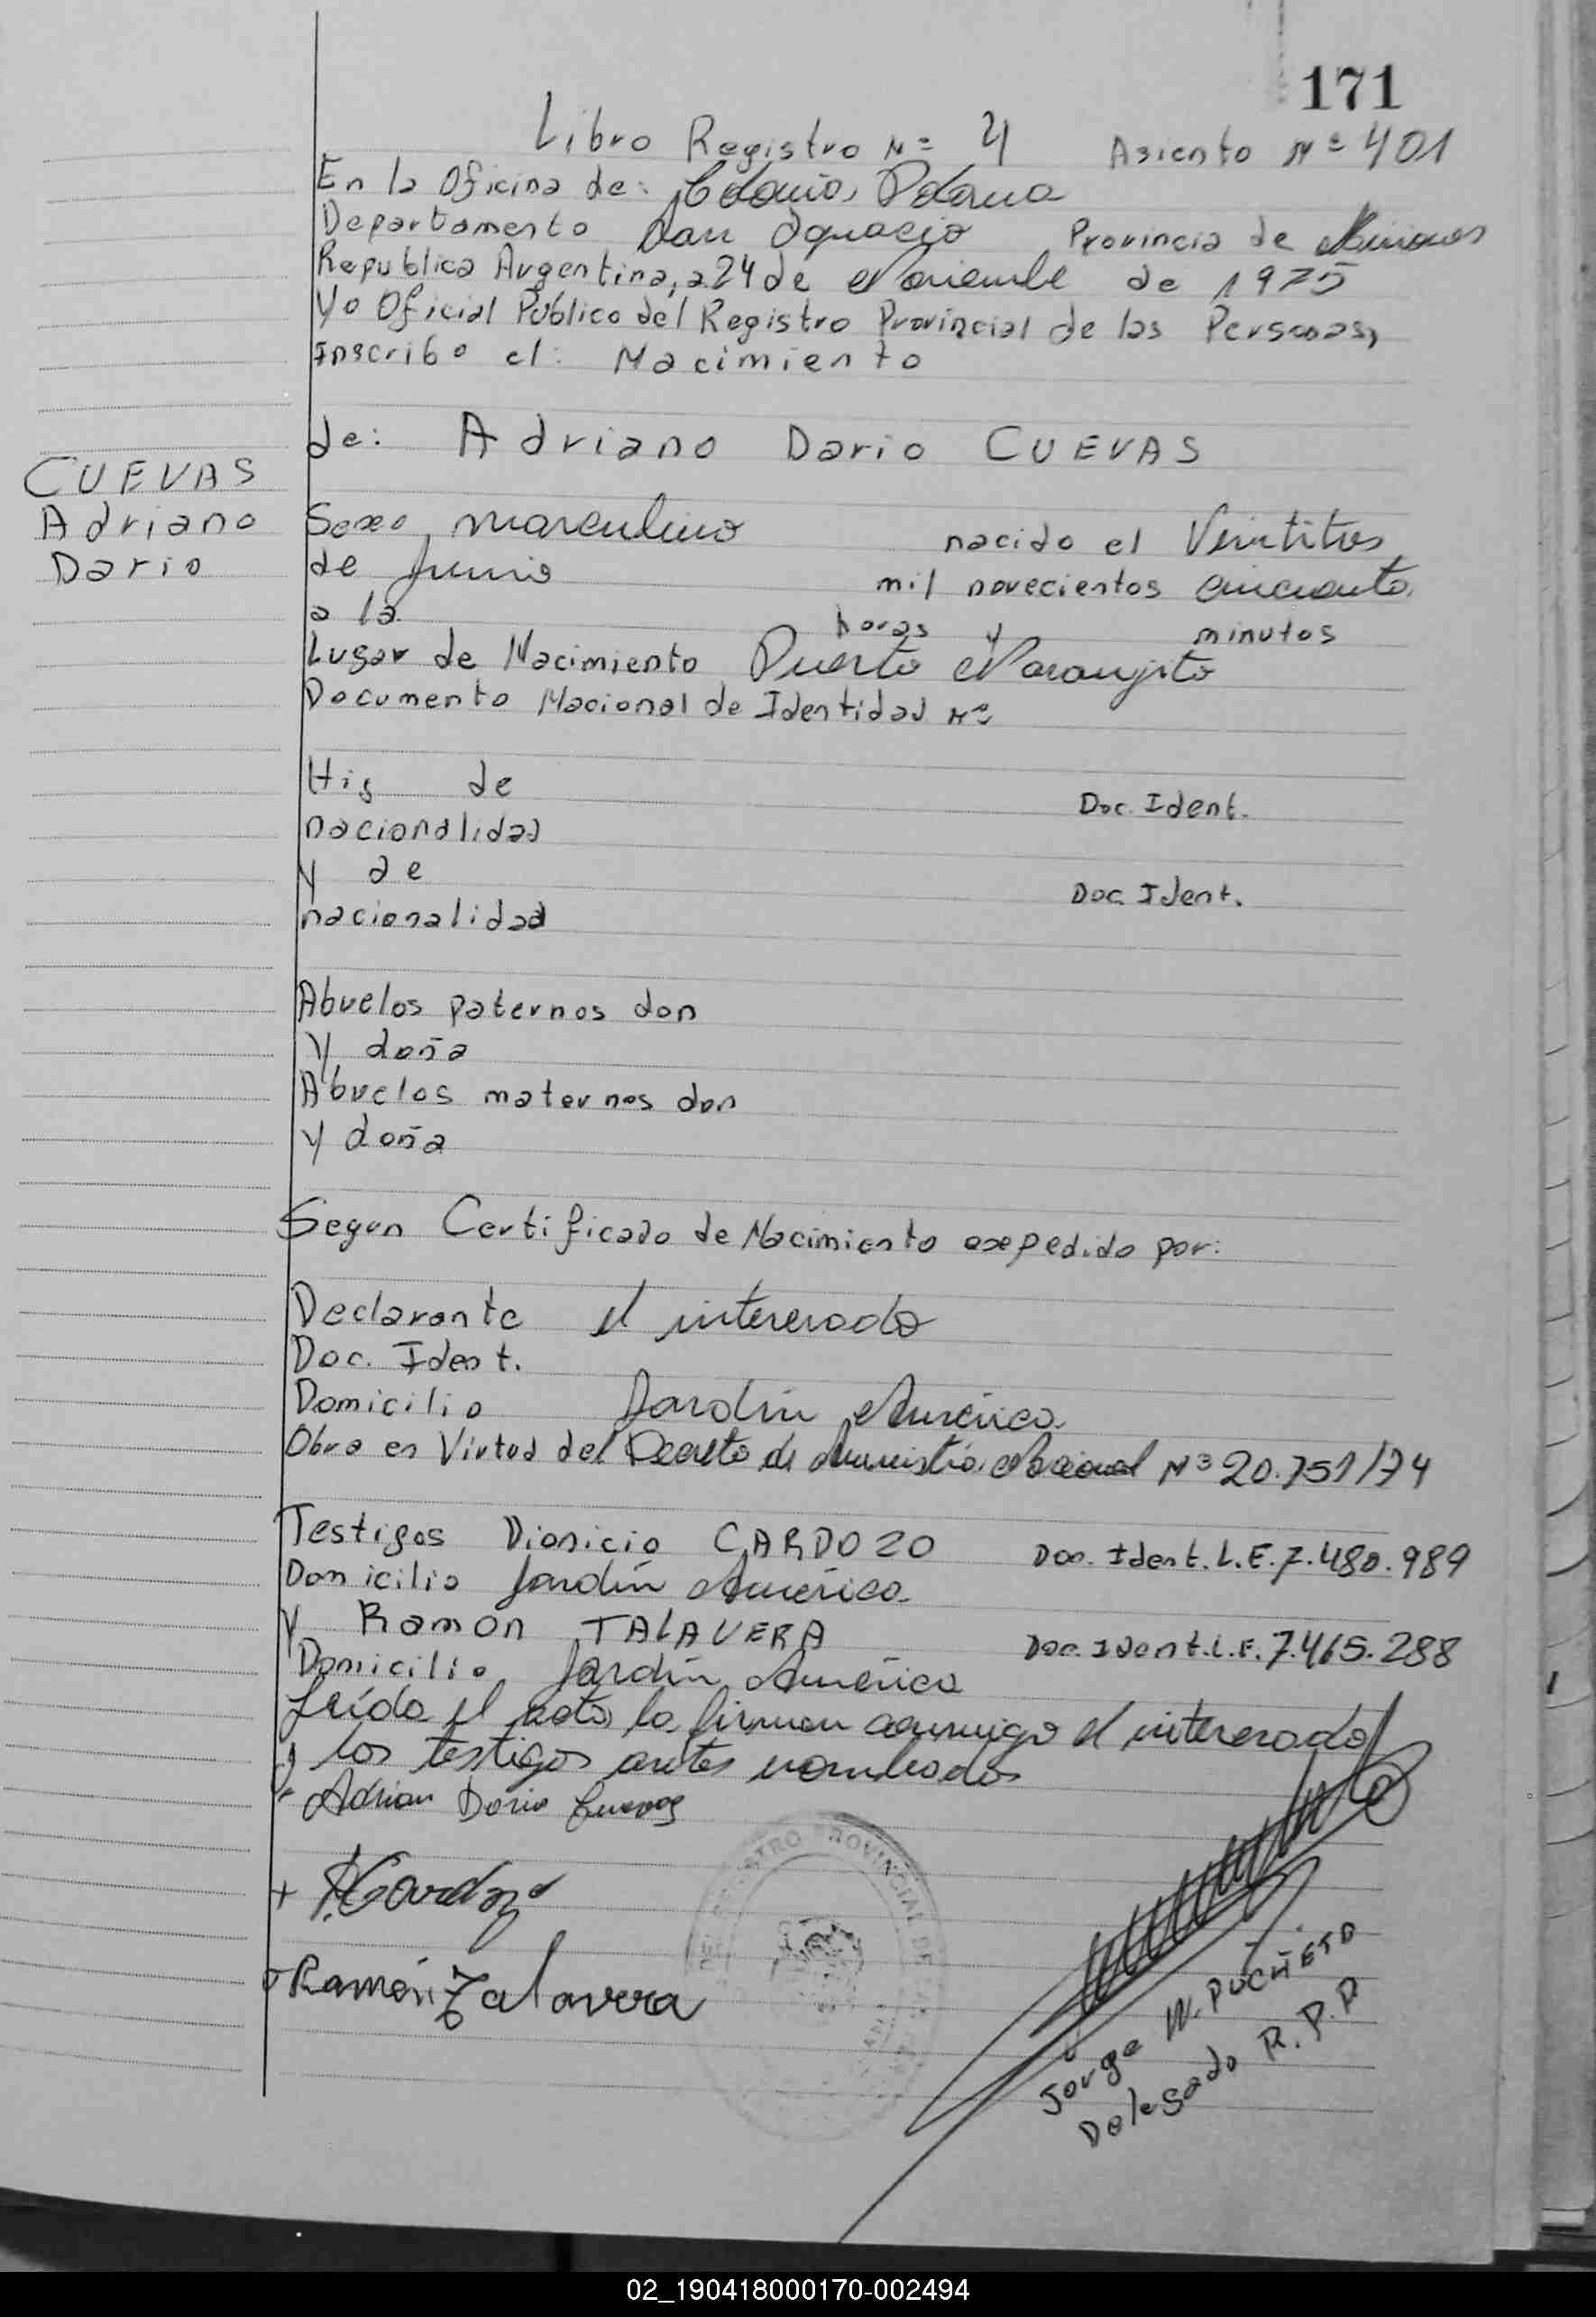 171
Libro Registro Nº 4 Asiento Nº 401
En la Oficina de: Colonia Polana
Departamento San Ignacio Provincia de Misiones
Republica Argentina, a 24 de Noviembre de 1975
Yo Oficial Público del Registro Provincial de las Personas,
Inscribo el: Nacimiento
de: Adriano Dario CUEVAS
CUEVAS
Adriano
Dario
Sexo masculino nacido el Veintitres
de Junio mil novecientos cincuenta
a la horas y minutos
Lugar de Nacimiento Puerto Naranjito
Documento Nacional de Identidad Nº
Hijo de Doc. Ident.
nacionalidad
y de Doc. Ident.
nacionalidad
Abuelos paternos don
y doña
Abuelos maternos don
y doña
Segun Certificado de Nacimiento expedido por:
Declarante el interesado
Doc. Ident.
Domicilio Jardín América
Obra en Virtud del Decreto de Amnistía Nacional Nº 20.751/74
Testigos Dionicio CARDOZO Doc. Ident. L.E. 7.480.989
Domicilio Jardín América
y Ramón TALAVERA Doc. Ident. L.E. 7.465.288
Domicilio Jardín América
Leída el acta la firman conmigo el interesado
y los testigos antes nombrados
Adrian Dario Cuevas
+ Cardozo
Ramón Talavera
REGISTRO PROVINCIAL DE
Jorge W. PUCHETO
Delegado R.P.P
02_190418000170-002494